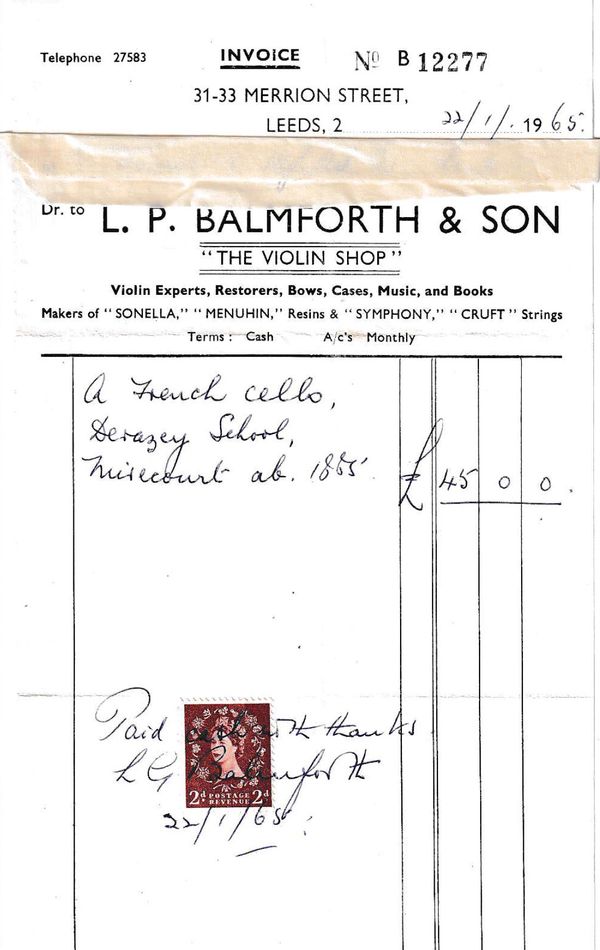 Telephone 27583
INVOICE
Nº B 12277
31-33 MERRION STREET,
LEEDS, 2 22/1/. 1965.
Dr. to L. P. BALMFORTH & SON
"THE VIOLIN SHOP"
Violin Experts, Restorers, Bows, Cases, Music, and Books
Makers of "SONELLA," "MENUHIN," Resins & "SYMPHONY," "CRUFT" Strings
Terms: Cash A/c's Monthly
A French cello,
Derazey School,
Mirecourt ab. 1885. £ 45 0 0.
Paid cash with thanks
L G Balmforth
2d POSTAGE REVENUE 2d
22/1/65.